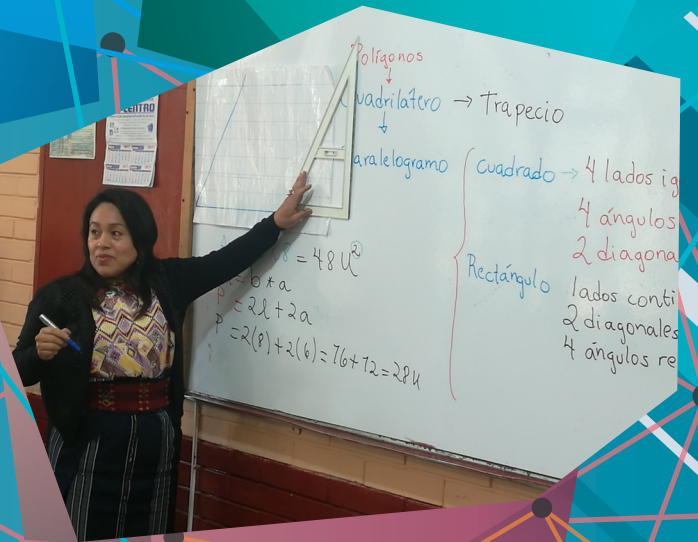 Polígonos
uadrilátero → Trapecio
aralelogramo
cuadrado → 4 lados ig
4 ángulos
2 diagona
Rectángulo
lados conti
2 diagonales
4 ángulos re
8 = 48 u²
= b * a
P = 2l + 2a
P = 2(8) + 2(6) = 16 + 12 = 28u
CENTRO